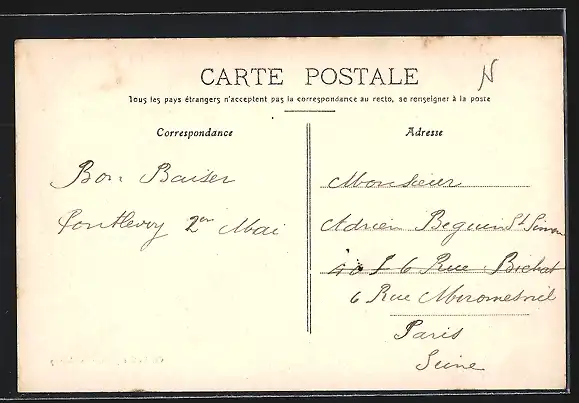 CARTE POSTALE
N
Tous les pays étrangers n'acceptent pas la correspondance au recto, se renseigner à la poste
Correspondance
Adresse
Bon Baiser
Pontlevoy 2er Mai
Monsieur
Adrien Beguin St Simon
6 Rue Bichat
6 Rue Miromesnil
Paris
Seine